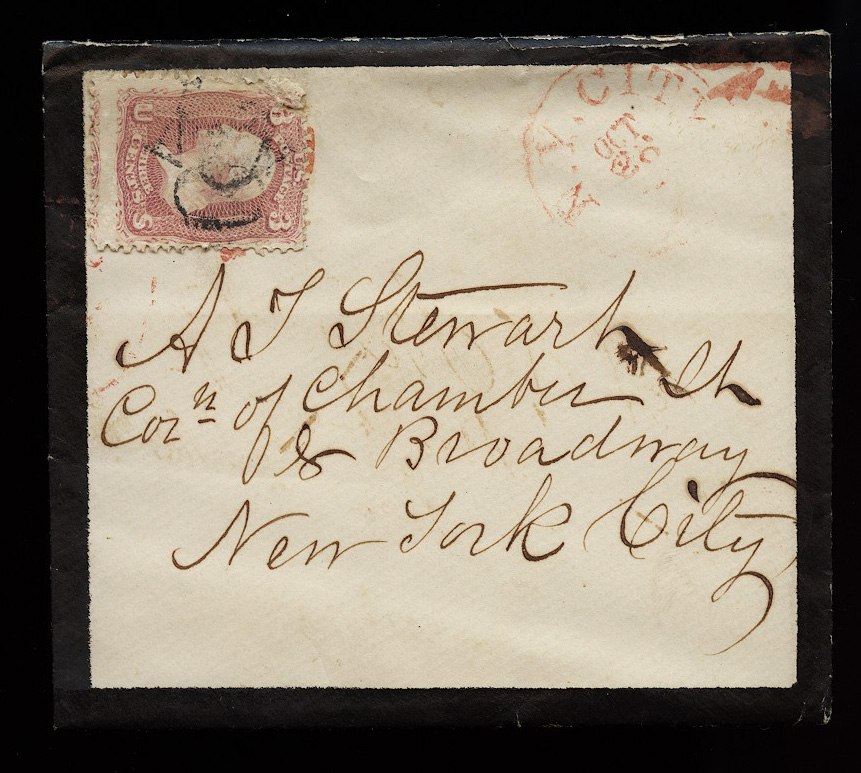 U 3
U.S. POSTAGE
THREE CENTS
S 3
N.Y. CITY
OCT.
A T Stewart
Corn of Chamber St
& Broadway
New York City